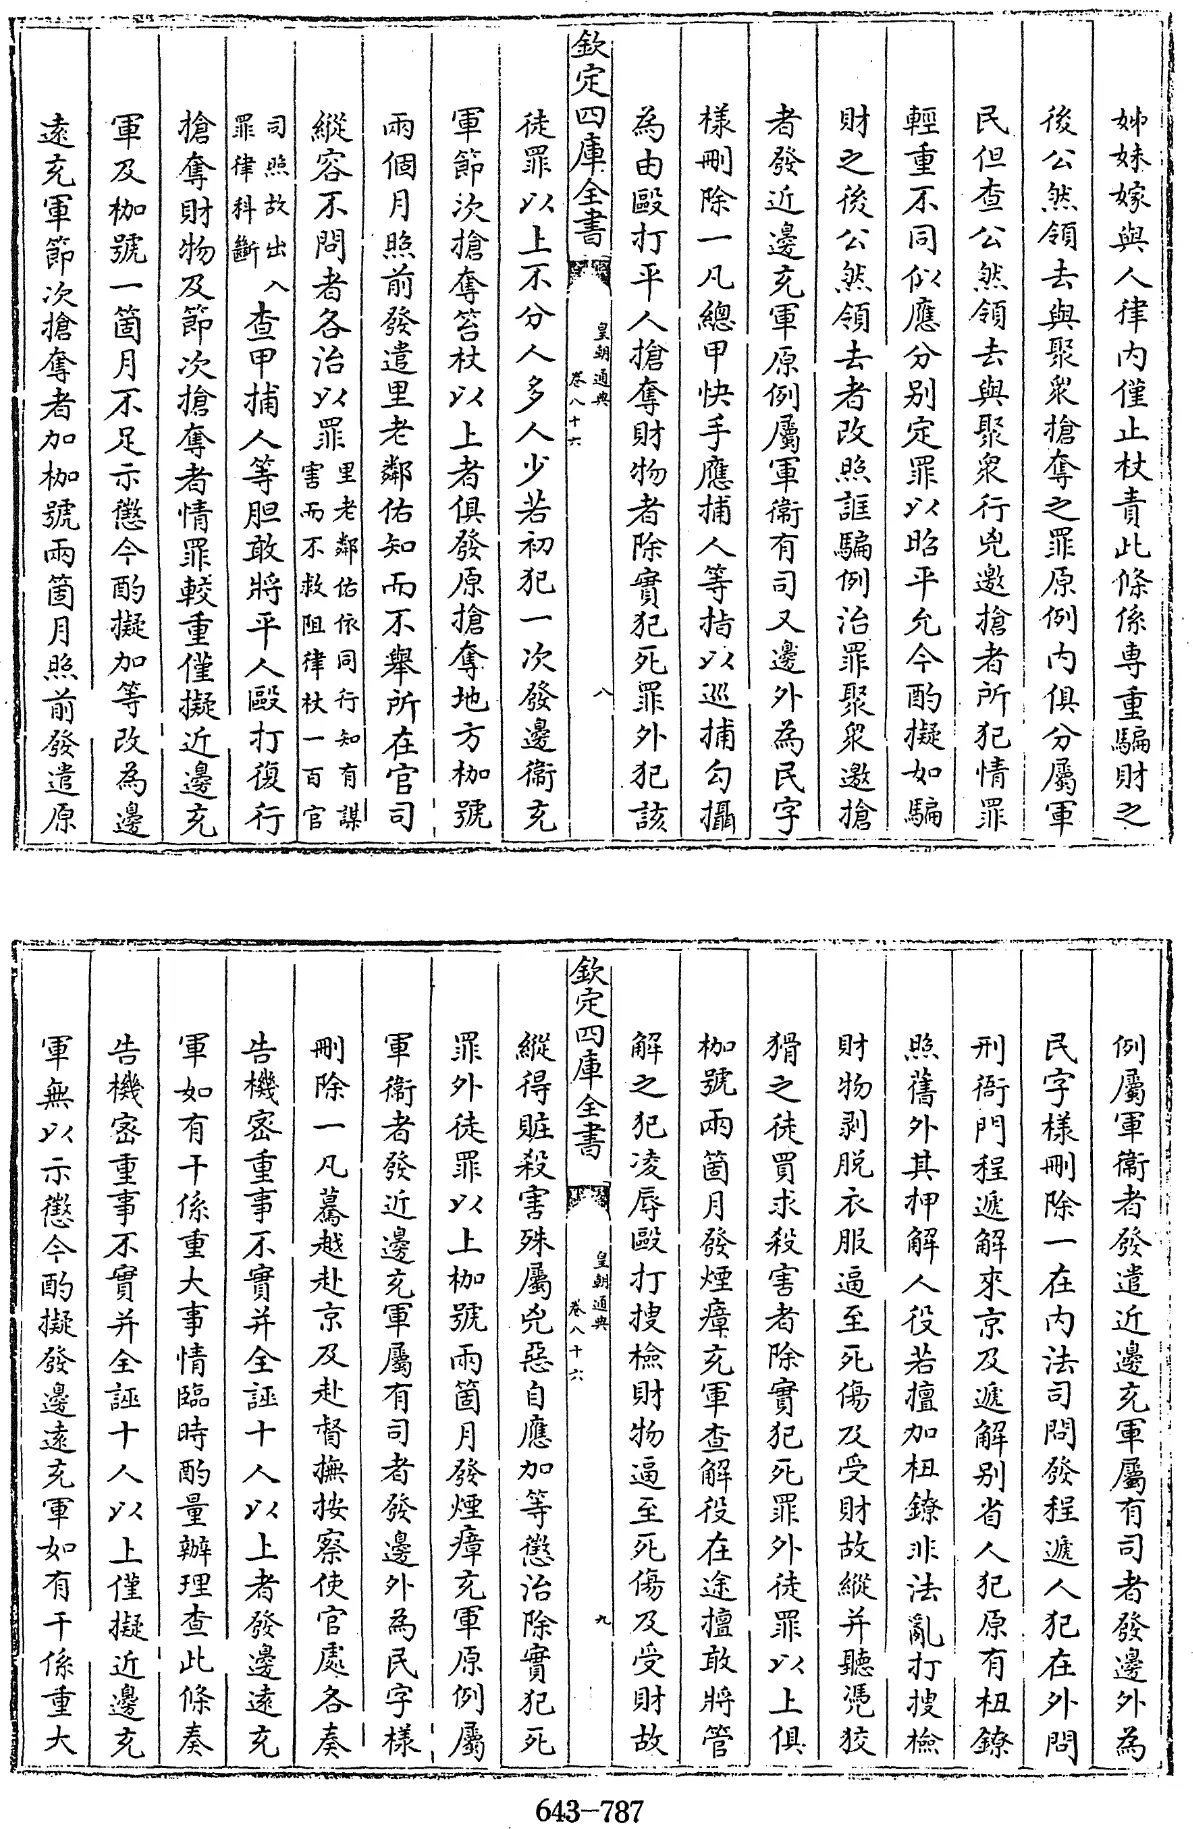 姊妹嫁與人律内僅止杖責此條係専重騙財之
後公然領去與聚衆搶奪之罪原例内俱分屬軍
民但查公然領去與聚衆行兇邀搶者所犯情罪
輕重不同似應分别定罪以昭平允今酌擬如騙
財之後公然領去者改照誆騙例治罪聚衆邀搶
者發近邊充軍原例屬軍衞有司又邊外為民字
様刪除一凡總甲快手應捕人等指以巡捕勾攝
為由毆打平人搶奪財物者除實犯死罪外犯該
欽定四庫全書
皇朝通典
卷八十六
八
徒罪以上不分人多人少若初犯一次發邊衞充
軍節次搶奪笞杖以上者俱發原搶奪地方枷號
兩個月照前發遣里老鄰佑知而不舉所在官司
縱容不問者各治以罪里老鄰佑依同行知有謀
害而不救阻律杖一百官
司照故出入
罪律科斷查甲捕人等胆敢將平人毆打復行
搶奪財物及節次搶奪者情罪較重僅擬近邊充
軍及枷號一箇月不足示懲今酌擬加等改為邊
遠充軍節次搶奪者加枷號兩箇月照前發遣原
例屬軍衞者發遣近邊充軍屬有司者發邊外為
民字様刪除一在内法司問發程遞人犯在外問
刑衙門程遞解來京及遞解别省人犯原有杻鐐
照舊外其押解人役若擅加杻鐐非法亂打搜檢
財物剥脱衣服逼至死傷及受財故縱并聽慿狡
猾之徒買求殺害者除實犯死罪外徒罪以上俱
枷號兩箇月發煙瘴充軍查解役在途擅敢將管
解之犯凌辱毆打搜檢財物逼至死傷及受財故
欽定四庫全書
皇朝通典
卷八十六
九
縱得賍殺害殊屬兇惡自應加等懲治除實犯死
罪外徒罪以上枷號兩箇月發煙瘴充軍原例屬
軍衞者發近邊充軍屬有司者發邊外為民字様
刪除一凡驀越赴京及赴督撫按察使官處各奏
告機宻重事不實并全誣十人以上者發邊遠充
軍如有干係重大事情臨時酌量辦理查此條奏
告機宻重事不實并全誣十人以上僅擬近邊充
軍無以示懲今酌擬發邊遠充軍如有干係重大
643-787